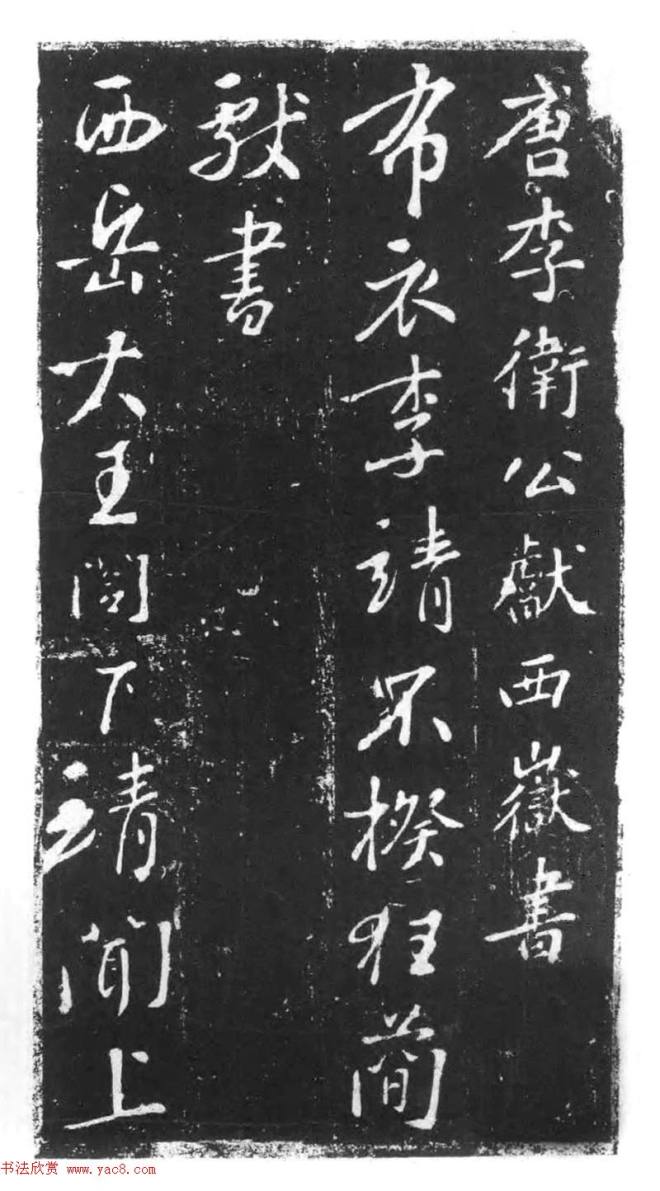 唐李衛公獻西嶽書
布衣李靖不揆狂簡
獻書
西岳大王閤下靖聞上
书法欣赏 www.yac8.com